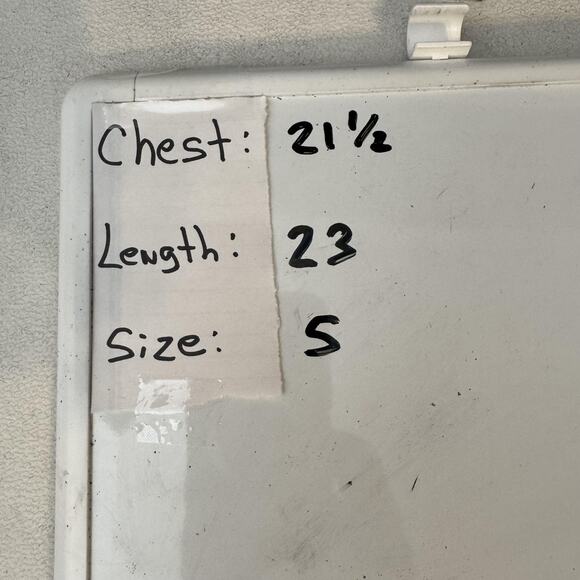 Chest: 21 1/2
Length: 23
Size: S